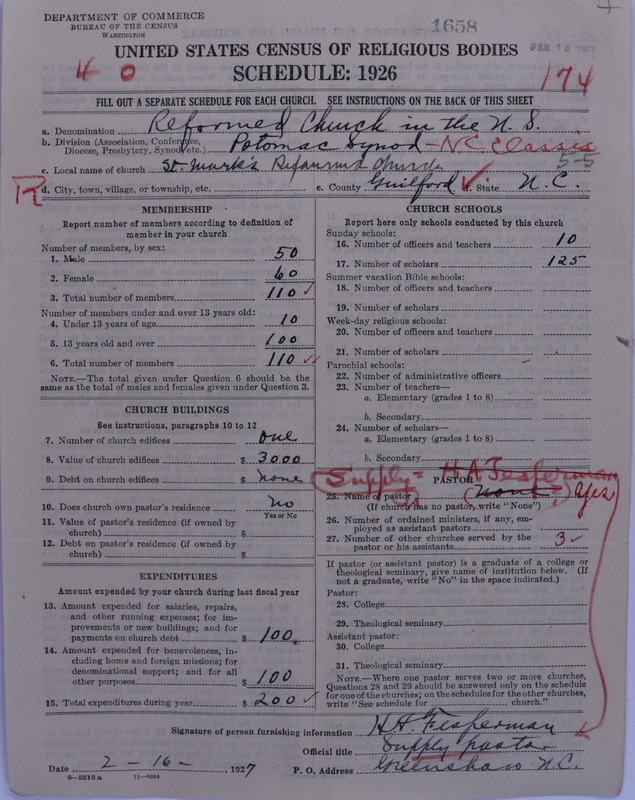 DEPARTMENT OF COMMERCE
BUREAU OF THE CENSUS
WASHINGTON
1658
FEB 18 1927
UNITED STATES CENSUS OF RELIGIOUS BODIES
4 0
SCHEDULE: 1926
174
FILL OUT A SEPARATE SCHEDULE FOR EACH CHURCH. SEE INSTRUCTIONS ON THE BACK OF THIS SHEET
a. Denomination Reformed Church in the U. S.
b. Division (Association, Conference, Diocese, Presbytery, Synod, etc.) Potomac Synod - NC Classis
5-5
c. Local name of church St. Mark's Reformed Church
R d. City, town, village, or township, etc. e. County Guilford f. State N. C.
MEMBERSHIP
Report number of members according to definition of
member in your church
Number of members, by sex:
1. Male 50
2. Female 60
3. Total number of members 110
Number of members under and over 13 years old:
4. Under 13 years of age 10
5. 13 years old and over 100
6. Total number of members 110
NOTE.—The total given under Question 6 should be the
same as the total of males and females given under Question 3.
CHURCH BUILDINGS
See instructions, paragraphs 10 to 12
7. Number of church edifices One
8. Value of church edifices $ 3000
9. Debt on church edifices $ None
10. Does church own pastor's residence No
Yes or No
11. Value of pastor's residence (if owned by
church) $
12. Debt on pastor's residence (if owned by
church) $
EXPENDITURES
Amount expended by your church during last fiscal year
13. Amount expended for salaries, repairs,
and other running expenses; for im-
provements or new buildings; and for
payments on church debt $ 100.
14. Amount expended for benevolences, in-
cluding home and foreign missions; for
denominational support; and for all
other purposes $ 100
15. Total expenditures during year $ 200
CHURCH SCHOOLS
Report here only schools conducted by this church
Sunday schools:
16. Number of officers and teachers 10
17. Number of scholars 125
Summer vacation Bible schools:
18. Number of officers and teachers
19. Number of scholars
Week-day religious schools:
20. Number of officers and teachers
21. Number of scholars
Parochial schools:
22. Number of administrative officers
23. Number of teachers—
a. Elementary (grades 1 to 8)
b. Secondary
24. Number of scholars—
a. Elementary (grades 1 to 8)
b. Secondary
Supply = H A Fesperman
PASTOR
25. Name of pastor (None) Yes
(If church has no pastor, write "None")
26. Number of ordained ministers, if any, em-
ployed as assistant pastors
27. Number of other churches served by the
pastor or his assistants 3
If pastor (or assistant pastor) is a graduate of a college or
theological seminary, give name of institution below. (If
not a graduate, write "No" in the space indicated.)
Pastor:
28. College
29. Theological seminary
Assistant pastor:
30. College
31. Theological seminary
NOTE.—Where one pastor serves two or more churches,
Questions 28 and 29 should be answered only on the schedule
for one of the churches; on the schedules for the other churches,
write "See schedule for church."
Signature of person furnishing information H. A. Fesperman
Official title Supply pastor
Date 2 - 16 - , 1927 P. O. Address Greensboro N.C.
8—5518a 11—9024